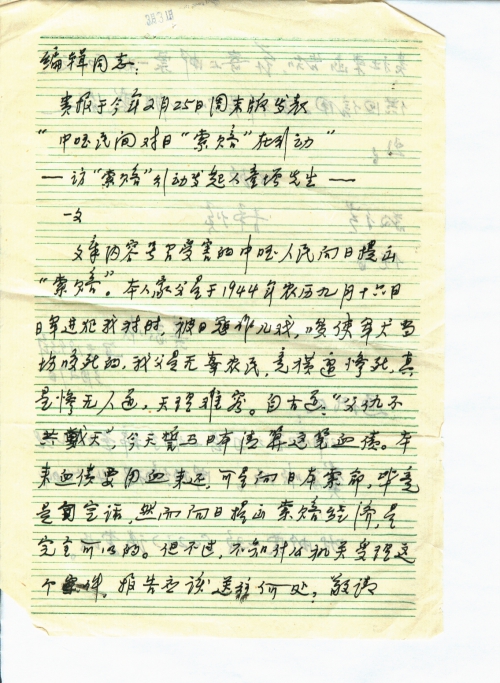 编辑同志:
贵报于今年2月25日周末版发表
“中国民间对日“索赔”在引动”
——访“索赔”引动发起人童增先生——
一文
文章内容号召受害的中国人民向日提出
“索赔”。本人家父是于1944年农历九月十六日
日军进犯我村时,被日寇作儿戏,唆使军犬当
场咬死的,我父是无辜农民,竟横遭惨死,真
是惨无人道,天理难容。自古道:“父仇不
共戴天”,今天誓与日本清算这笔血债。本
来血债要用血来还,可是向日本索命,毕竟
是空话,然而向日提出索赔经济,是
完全可以的。但不过,不知什么机关受理这
个,报告应该送往何处?敬请